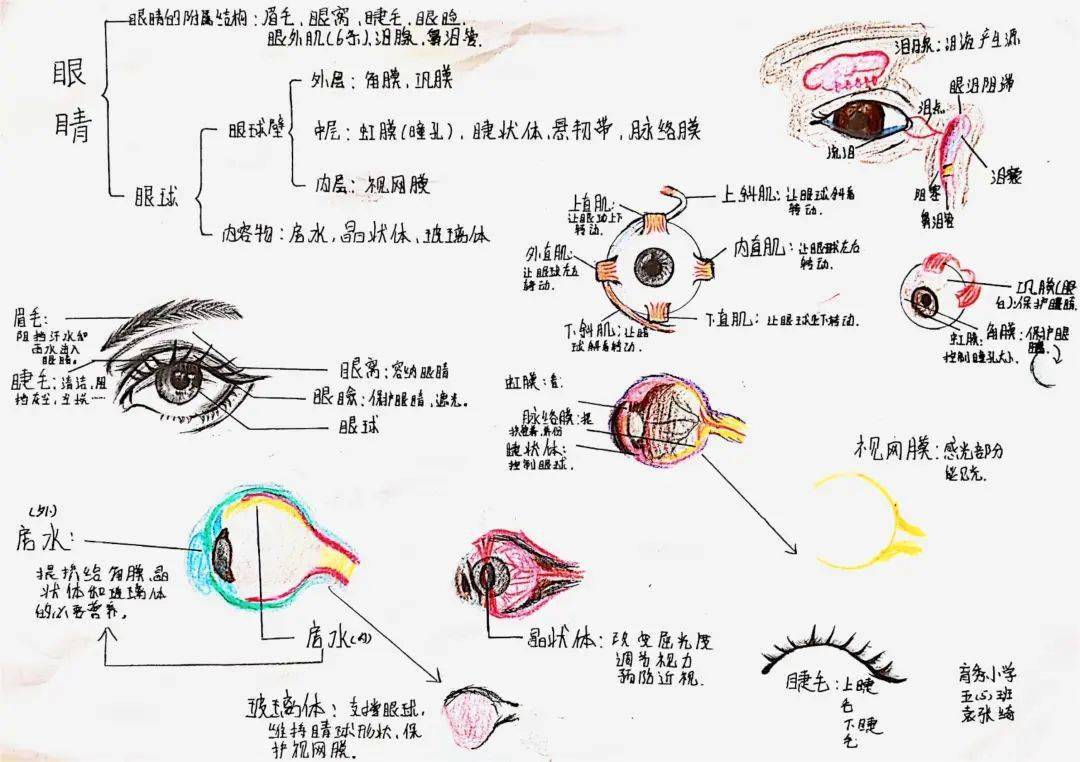 眼睛
眼睛的附属结构：眉毛，眼窝，睫毛，眼睑，
眼外肌(6条)，泪腺，鼻泪管.
眼球
眼球壁
外层：角膜，巩膜
中层：虹膜(瞳孔)，睫状体，悬韧带，脉络膜
内层：视网膜
内容物：房水，晶状体，玻璃体
泪腺：泪液产生源
眼泪阻滞
泪点
流泪
泪囊
阻塞
鼻泪管
上直肌：
让眼球上下
转动.
上斜肌：让眼球斜着
转动.
外直肌：
让眼球左右
转动.
内直肌：让眼球左右
转动.
下斜肌：让眼
球斜着转动.
下直肌：让眼球上下转动.
巩膜(眼
白)：保护眼睛.
虹膜：
控制瞳孔大小.
角膜：保护眼
睛.
眉毛：
阻挡汗水和
雨水进入
眼睛.
睫毛：清洁，阻
挡灰尘，
眼窝：容纳眼睛
眼睑：保护眼睛，遮光。
眼球
虹膜：
脉络膜：提
供营养，
睫状体：
控制眼球.
视网膜：感光部分
(外)
房水：
提供给角膜，晶
状体和玻璃体
的必要营养。
房水(内)
晶状体：改变屈光度
调节视力
预防近视.
玻璃体：支撑眼球，
维持晴球形状，保
护视网膜。
睫毛：上睫
毛
下睫
毛
育秀小学
五(5)班
袁张绮